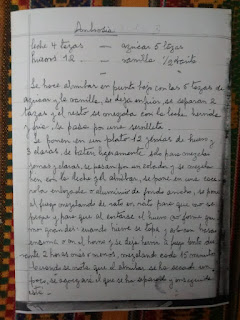 Ambrosia
leche 4 tazas — azucar 5 tazas
huevos 12 — vainilla 1/2
Se hace almibar en punto hijo con las 5 tazas de
azucar y la vainilla, se deja enfriar, se separan 2
tazas y el resto se mezcla con la leche hervida
y fria. Se pasa por una servilleta.
Se ponen en un plato 12 yemas de huevo y
claras, se baten ligeramente, solo para mezclar
yemas y claras, se pasan por un colador y se mezclan
con la leche y el almibar, se pone en una cace
rola enlozada o aluminio de fondo ancho, se pone
al fuego mezclando de rato en rato para que no se
pegue y para que al cortarse el huevo se forme
mas grandes. cuando hierve se tapa y
encima o en el horno y se deja hervir a fuego lento
2 horas mas o menos, mezclando cada 15 minutos
cuando se nota que el almibar se ha secado un
poco, se agregara el que se ha separado y enseguida